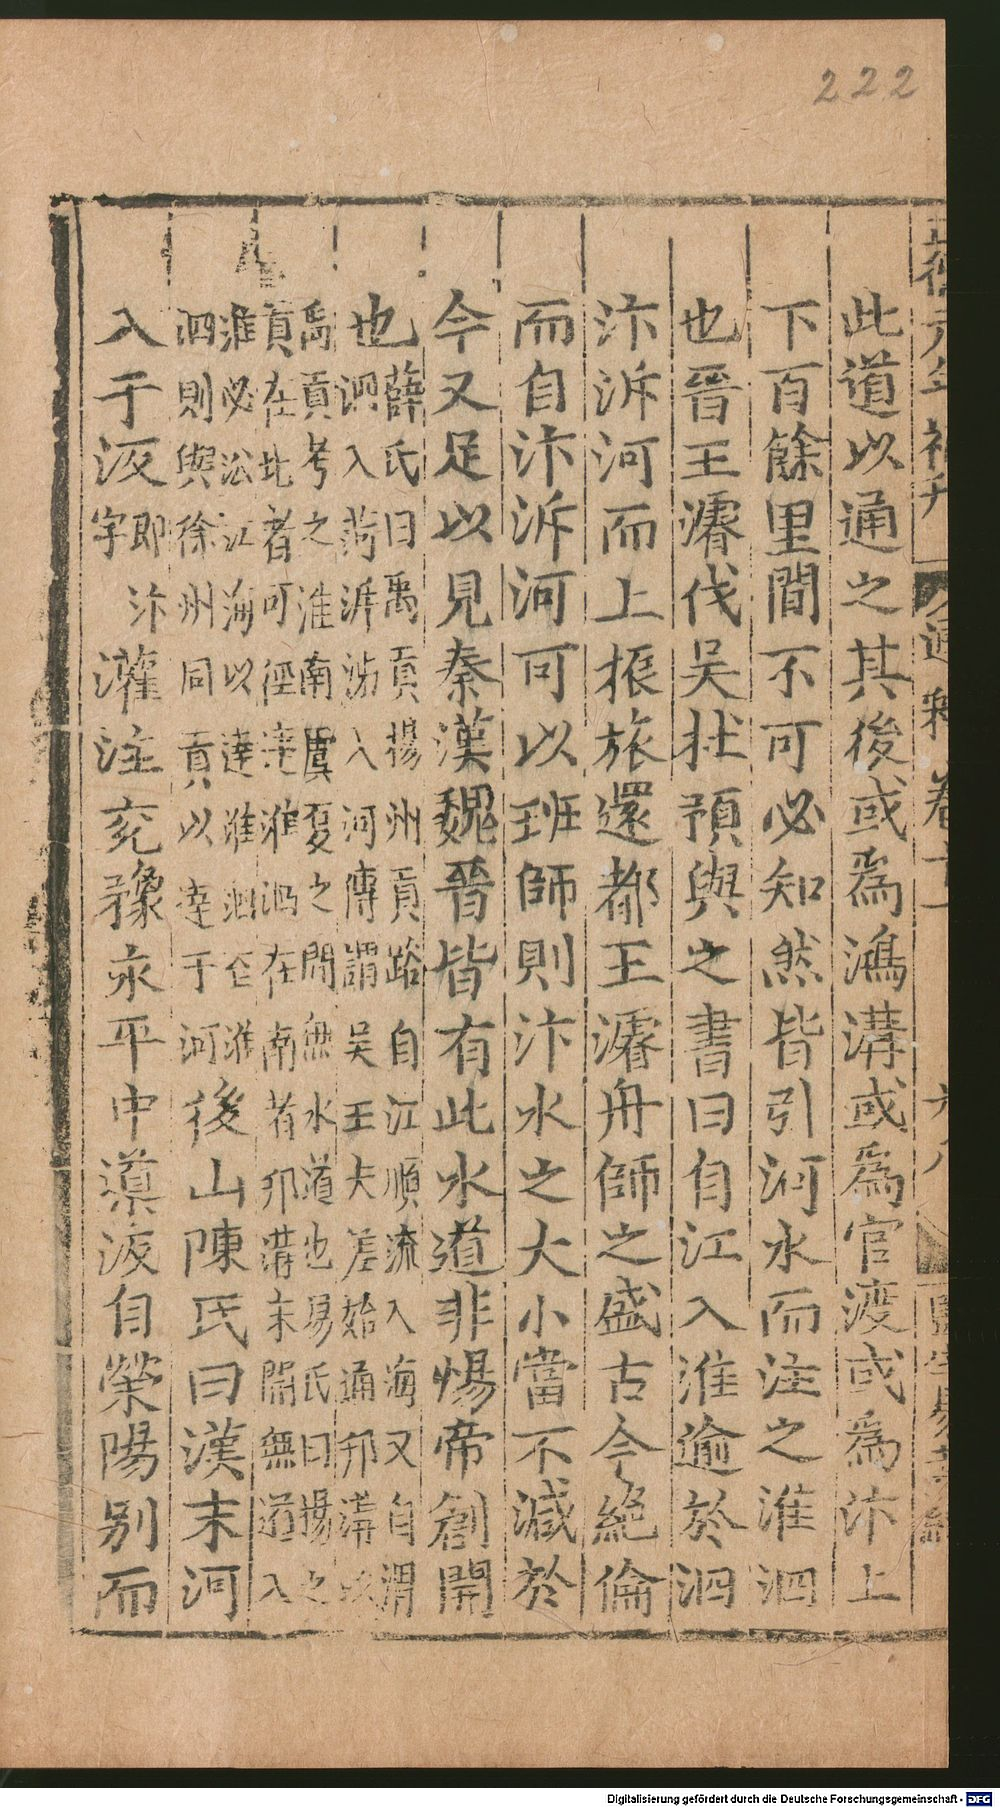 222
此道以通之其後或為鴻溝或為官渡或為汴上
下百餘里間不可必知然皆引河水而注之淮泗
也晉王濬伐吳杜預與之書曰自江入淮逾於泗
汴泝河而上振旅還都王濬舟師之盛古今絕倫
而自汴泝河可以班師則汴水之大小當不減於
今又足以見秦漢魏晉皆有此水道非惕帝創開
也
薛氏曰禹貢揚州貢路自江順流入海又自淮
泗入菏泝沇入河傳謂吳王夫差始通邗溝以
禹貢考之淮南虞夏之間無水道也易氏曰揚之
貢在北者可徑達淮泗在南者邗溝未開無道入
淮必㳂江海以達淮泗仝淮
泗則與徐州同貢以達于河
後山陳氏曰漢末河
入于汳
即汴
字
灌注兖豫永平中導汳自滎陽別而
Digitalisierung gefördert durch die Deutsche Forschungsgemeinschaft - DFG